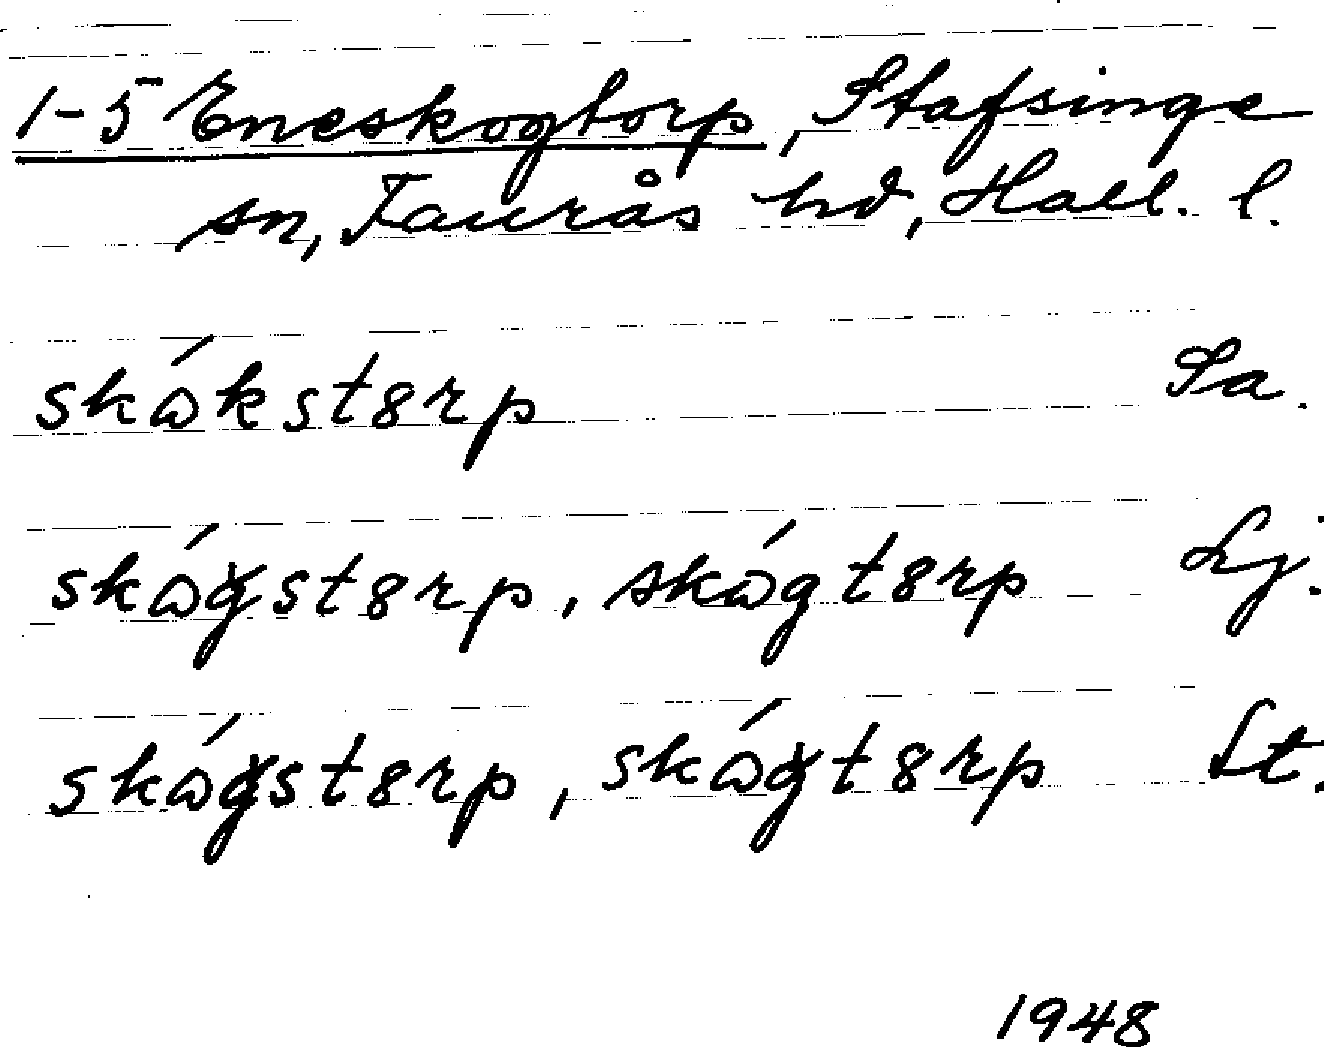 1-5 Eneskogtorp, Stafsinge
sn, Faurås hd, Hall. l.
skákstɵrp Sa.
skáɡstɵrp, skágtɵrp Lj.
skáɡstɵrp, skáɡtɵrp St.
1948